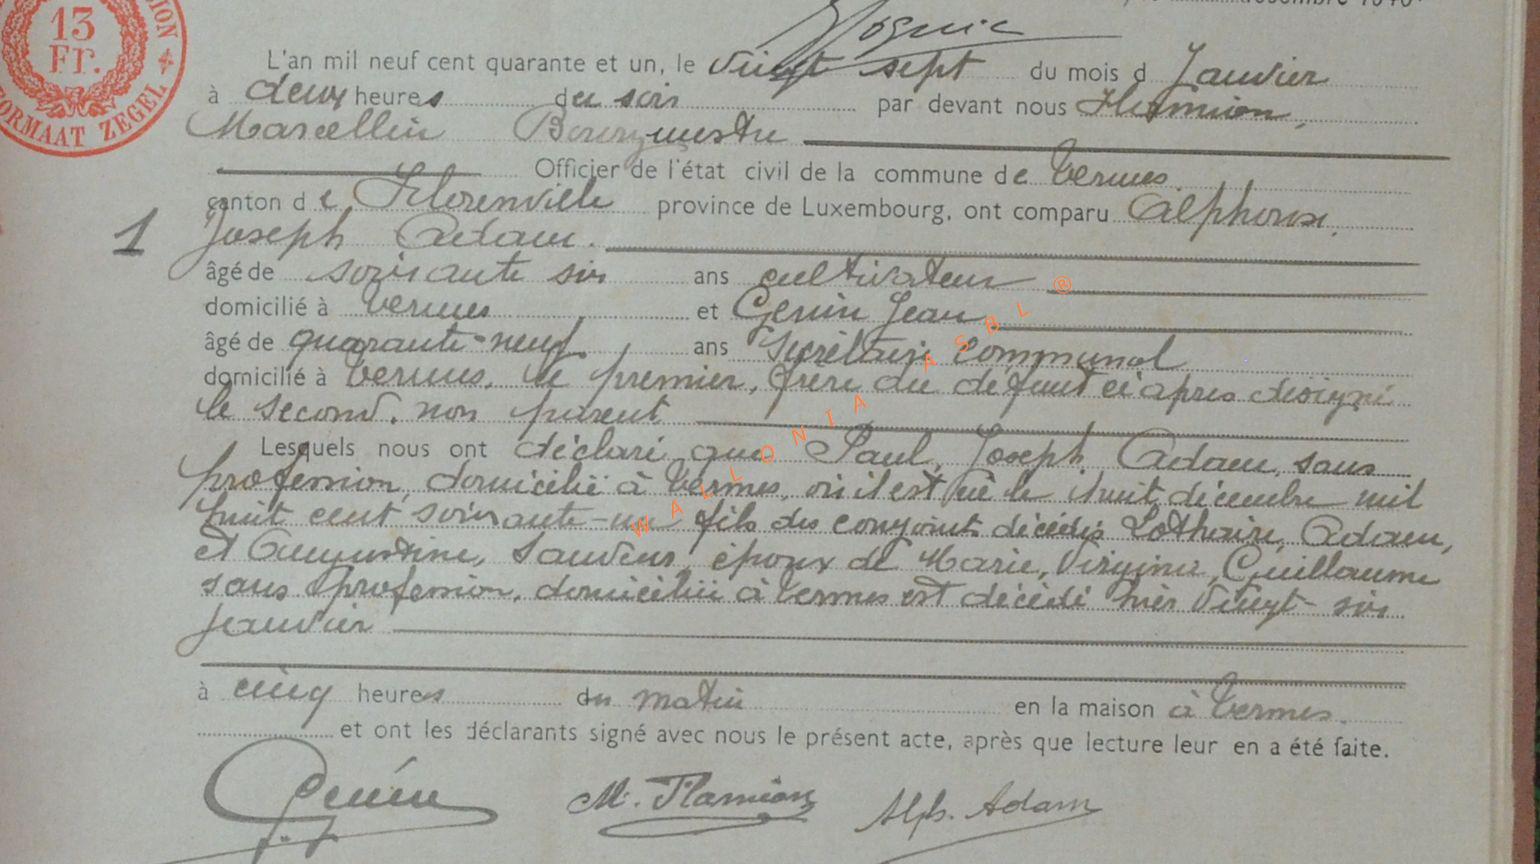 13
Fr.
FORMAAT ZEGEL
L'an mil neuf cent quarante et un, le vingt sept du mois d Janvier
à deux heures du soir par devant nous Flamion,
Marcellin Bourgmestre
Officier de l'état civil de la commune de Termes
canton de Florenville province de Luxembourg, ont comparu Alphonse,
1 Joseph Adam.
âgé de soixante six ans cultivateur
domicilié à Termes et Genin Jean
âgé de quarante-neuf ans Secrétaire communal
domicilié à Termes, le premier, frère du défunt ci après désigné
le second, non parent
Lesquels nous ont déclaré que Paul, Joseph Adam, sans
profession, domicilié à Termes, où il est né le huit décembre mil
huit cent soixante-un fils des conjoints décédés Lothaire Adam,
et Augustine, Sauveur, époux de Marie, Virginie, Guillaume
sans profession, domiciliée à Termes est décédé hier vingt-six
janvier
à cinq heures du matin en la maison à Termes.
et ont les déclarants signé avec nous le présent acte, après que lecture leur en a été faite.
Genin M. Flamion Alph. Adam
WALLONIA ASBL ®